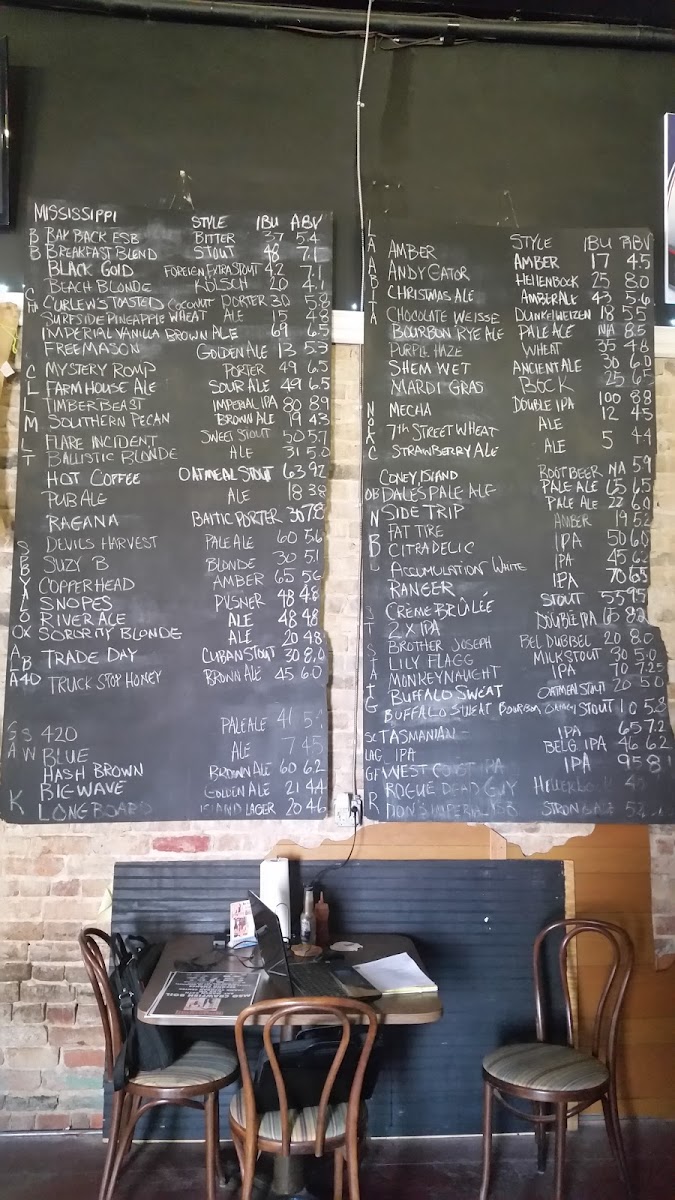 MISSISSIPPI STYLE IBU ABV
B RAK BACK ESB BITTER 37 5.4
B BREAKFAST BLEND STOUT 48 7.1
BLACK GOLD FOREIGN EXTRA STOUT 42 7.1
BEACH BLONDE KÖLSCH 20 4.1
CURLEW'S TOASTED COCONUT PORTER 30 5.8
SURFSIDE PINEAPPLE WHEAT ALE 15 4.8
IMPERIAL VANILLA BROWN ALE 69 6.5
FREEMASON GOLDEN ALE 13 5.3
C MYSTERY ROMP PORTER 49 6.5
L FARMHOUSE ALE SOUR ALE 49 6.5
L TIMBER BEAST IMPERIAL IPA 80 8.9
M SOUTHERN PECAN BROWN ALE 19 4.3
L FLARE INCIDENT SWEET STOUT 50 5.7
T BALLISTIC BLONDE ALE 31 5.0
HOT COFFEE OATMEAL STOUT 63 9.2
PUB ALE ALE 18 3.8
RAGANA BALTIC PORTER 30 7.8
S DEVILS HARVEST PALE ALE 60 5.6
B SUZY B BLONDE 30 5.1
Y COPPERHEAD AMBER 65 5.6
A SNOPES PILSNER 48 4.8
L RIVER ALE ALE 48 4.8
OX SORORITY BLONDE ALE 20 4.8
A L B TRADE DAY CUBAN STOUT 30 8.0
TRUCK STOP HONEY BROWN ALE 45 6.0
S 420 PALE ALE 41
A W BLUE ALE 7 4.5
HASH BROWN BROWN ALE 60 6.2
BIG WAVE GOLDEN ALE 21 4.4
K LONGBOARD ISLAND LAGER 20 4.6
STYLE IBU ABV
L AMBER AMBER 17 4.5
A ANDYGATOR HELLENBOCK 25 8.0
A CHRISTMAS ALE AMBER ALE 43 5.6
B CHOCOLATE WEISSE DUNKELWEIZEN 18 5.5
I BOURBON RYE ALE PALE ALE NA 8.5
T PURPLE HAZE WHEAT 35 4.8
A SHEM WET ANCIENT ALE 30 6.0
MARDI GRAS BOCK 25 6.5
N MECHA DOUBLE IPA 100 8.8
7TH STREET WHEAT ALE 12 4.5
C STRAWBERRY ALE ALE 5 4.4
CONEY ISLAND ROOT BEER NA 5.9
OB DALES PALE ALE PALE ALE 65 6.5
N SIDE TRIP PALE ALE 22 6.0
B FAT TIRE AMBER 19 5.2
CITRADELIC IPA 50 6.0
ACCUMULATION WHITE IPA 45 6.2
RANGER IPA 70 6.5
S CRÈME BRÛLÉE STOUT 55 9.5
T 2 X IPA DOUBLE IPA 65 8.2
BROTHER JOSEPH BEL DUBBEL 20 8.0
LILY FLAGG MILK STOUT 30 5.0
MONKEYNAUGHT IPA 70 7.25
BUFFALO SWEAT OATMEAL STOUT 20 5.0
BUFFALO SWEAT BOURBON STOUT 10 5.8
SC TASMANIAN IPA 65 7.2
LAG IPA BELG IPA 46 6.2
GF WEST COAST IPA IPA 95 8.1
R ROGUE DEAD GUY
DON'S IMPERIAL STRONG ALE